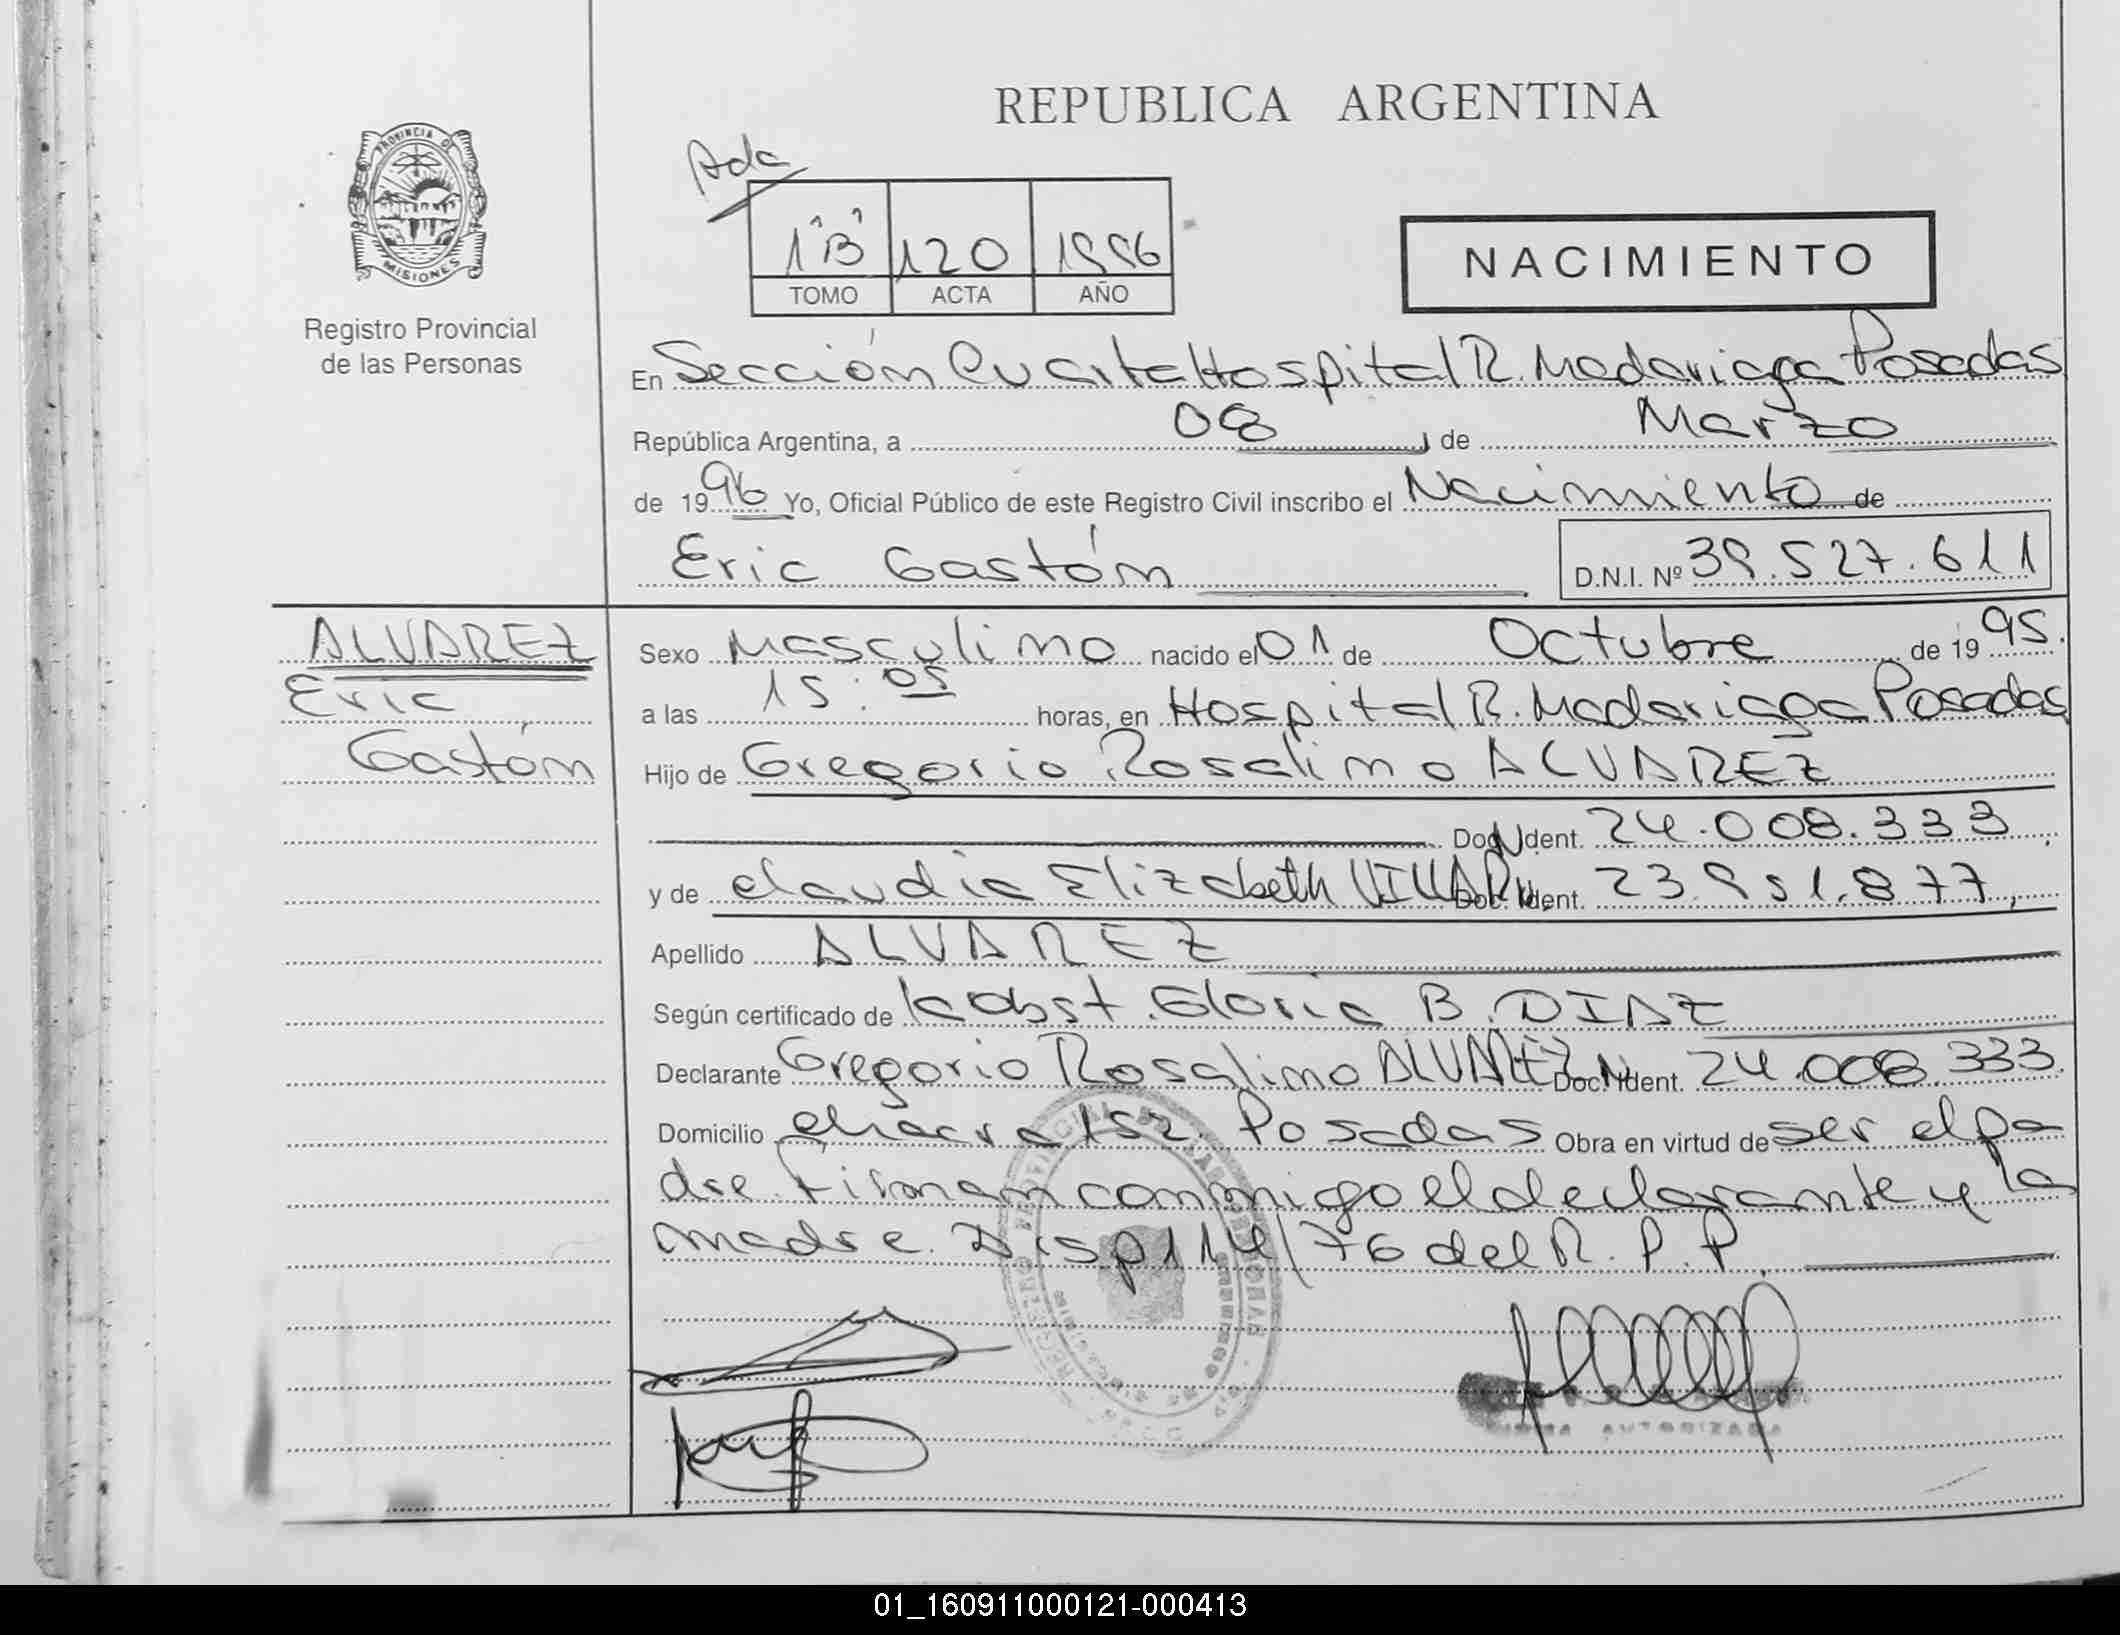 REPUBLICA ARGENTINA
PROVINCIA DE
MISIONES
Registro Provincial
de las Personas
1"B" 120 1996
TOMO ACTA AÑO
NACIMIENTO
En Sección Cuarta Hospital R. Madariaga Posadas
República Argentina, a 08 de Marzo
de 1996 Yo, Oficial Público de este Registro Civil inscribo el Nacimiento de
Eric Gastón D.N.I. Nº 39.527.611
ALVAREZ
Eric
Gastón
Sexo Masculino nacido el 01 de Octubre de 1995.
a las 15:05 horas, en Hospital R. Madariaga Posadas
Hijo de Gregorio Rosalino ALVAREZ
Doc. Ident. 24.008.333,
y de Claudia Elizabeth Doc. Ident. 23.951.877,
Apellido ALVAREZ
Según certificado de la Obst. Gloria B. DIAZ
Declarante Gregorio Rosalino ALVAREZ Doc. Ident. 24.008.333.
Domicilio Chacra 152. Posadas Obra en virtud de ser el pa
dre. Firman conmigo el declarante y la
madre. Disp 114/76 del R.P.P.
AUTORIZADA
01_160911000121-000413